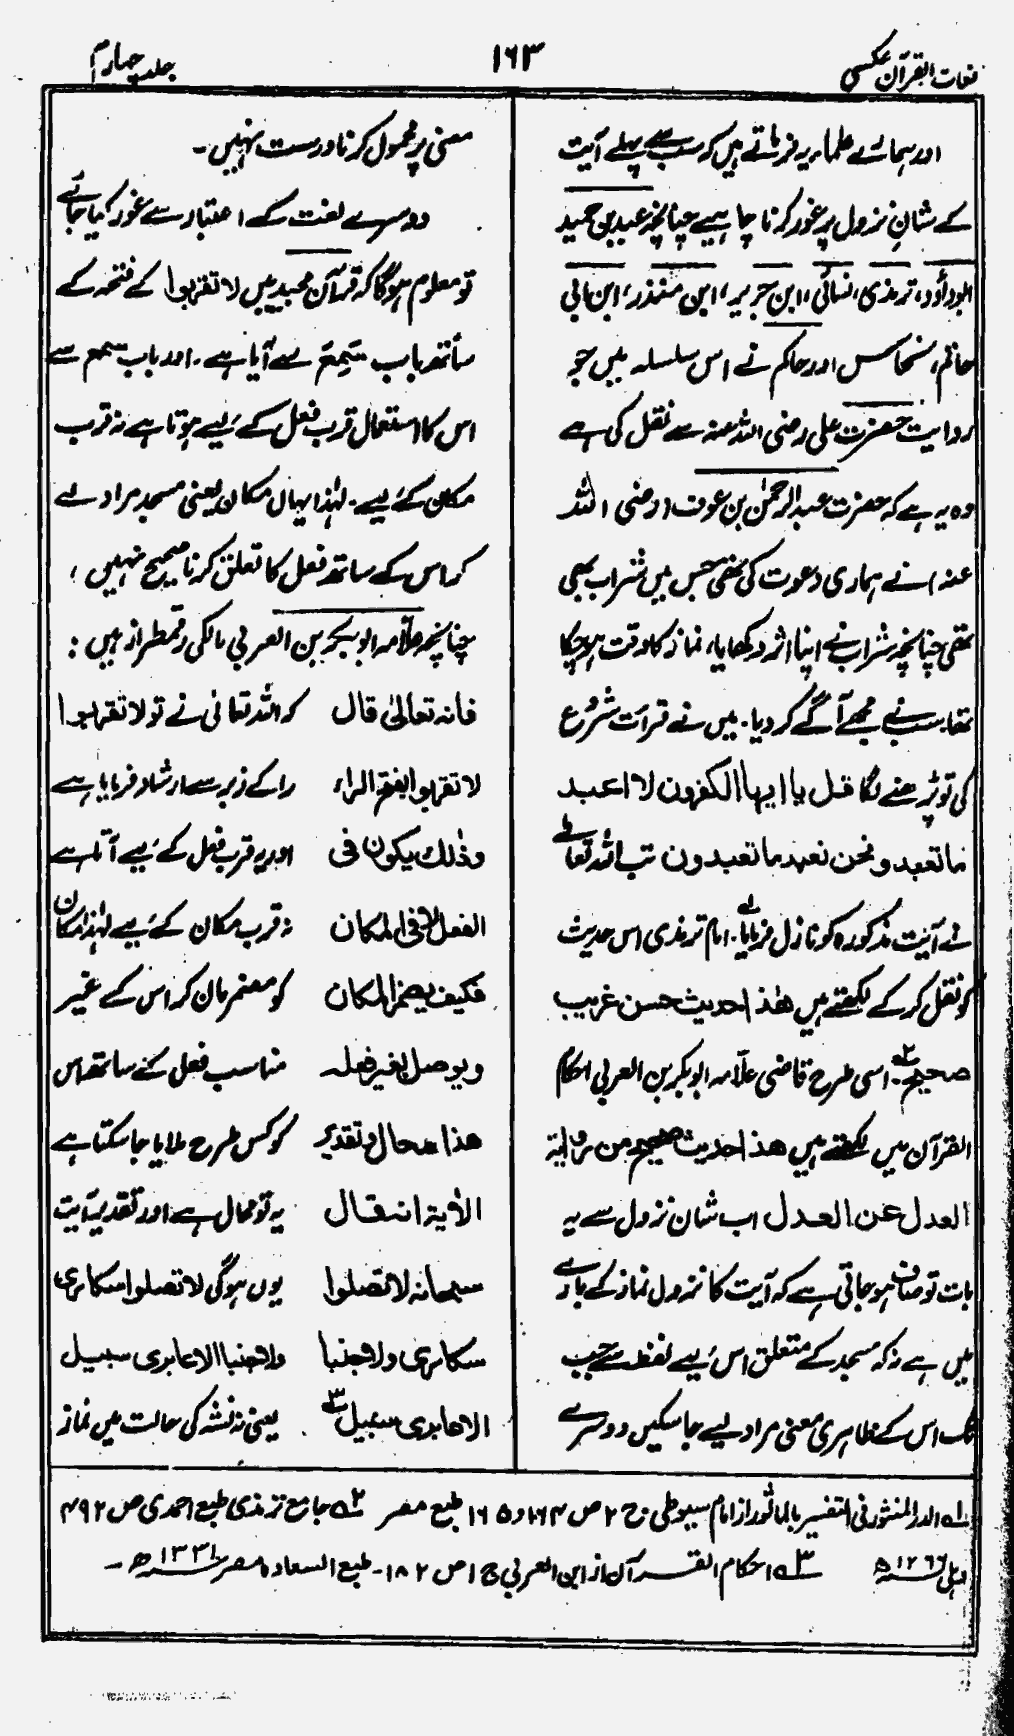 لغات القرآن عکسی
۱۶۳
جلد چہارم
اور ہمارے علماء یہ فرماتے ہیں کہ سب سے پہلے آیت
کے شانِ نزول پر غور کرنا چاہیے چنانچہ عبد بن حمید
ابوداؤد، ترمذی، نسائی، ابن جریر، ابن منذر، ابن ابی
حاتم، نحاس اور حاکم نے اس سلسلہ میں جو
روایت حضرت علی رضی اللہ عنہ سے نقل کی ہے
وہ یہ ہے کہ حضرت عبد الرحمٰن بن عوف (رضی اللہ
عنہ) نے ہماری دعوت کی تھی جس میں شراب بھی
تھی چنانچہ شراب نے اپنا اثر دکھایا، نماز کا وقت ہو چکا
تھا۔ سب نے مجھے آگے کر دیا۔ میں نے قرأت شروع
کی تو پڑھنے لگا قل یا ایھا الکٰفرون لا اعبد
ما تعبد و نحن نعبد ما تعبدون تب اللہ تعالےٰ
نے آیت مذکورہ کو نازل فرمایا۔ لہ امام ترمذی اس حدیث
کو نقل کر کے لکھتے ہیں ھٰذا حدیث حسن غریب
صحیح ۲؎۔ اسی طرح قاضی علّامہ ابو بکر بن العربی احکام
القرآن میں لکھتے ہیں ھذا حدیث صحیح من روایۃ
العدل عن العدل اب شان نزول سے یہ
بات تو صاف ہو جاتی ہے کہ آیت کا نزول نماز کے بارے
میں ہے نہ کہ مسجد کے متعلق اس لیے لفظ سے جب
تک اس کے ظاہری معنی مراد لیے جا سکیں دوسرے
معنی پر محمول کرنا درست نہیں۔
دوسرے لغت کے اعتبار سے غور کیا جائے
تو معلوم ہوگا کہ قرآن مجید میں لا تقربوا کے فتحہ کے
ساتھ باب سَمِعَ سے آیا ہے۔ اور باب سمع سے
اس کا استعمال قرب فعل کے لیے ہوتا ہے نہ قرب
مکان کے لیے۔ لہٰذا یہاں مکان یعنی مسجد مراد لے
کر اس کے ساتھ فعل کا تعلق کرنا صحیح نہیں،
چنانچہ علّامہ ابوبکر بن العربی مالکی رقمطراز ہیں:
فانہ تعالیٰ قال کہ اللہ تعالیٰ نے تو لا تقربوا
لا تقربوا بفتح الراء را کے زبر سے ارشاد فرمایا ہے
وذٰلك یکون فی اور یہ قرب فعل کے لیے آتا ہے
الفعل لا فی المکان نہ قرب مکان کے لیے لہٰذا مکان
فکیف یضمر المکان کو مضمر مان کر اس کے غیر
ویوصل بغیر فعلہ مناسب فعل کے ساتھ اس
ھذا محال وتقدیر کو کس طرح ملایا جا سکتا ہے
الاٰیۃ انہ قال یہ تو محال ہے اور تقدیر آیت
سبحانہ لا تصلوا یوں ہوگی لا تصلوا سکارٰی
سکارٰی ولا جنبا ولا جنبا الا عابری سبیل
الا عابری سبیل ۳؎ یعنی نہ نشہ کی حالت میں نماز
۱؎ الدر المنثور فی التفسیر بالماثور از امام سیوطی ج ۲ ص ۱۶۴ و ۱۶۵ طبع مصر ۲؎ جامع ترمذی طبع احمدی ص ۴۹۲
دہلی ۱۲۶۶ھ ۳؎ احکام القرآن از ابن العربی ج ۱ ص ۱۸۲۔ طبع السعادہ مصر ۱۳۳۱ھ۔